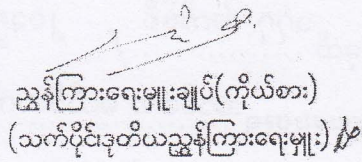 ညွှန်ကြားရေးမှူးချုပ်(ကိုယ်စား)
(သက်ပိုင်၊ဒုတိယညွှန်ကြားရေးမှူး)